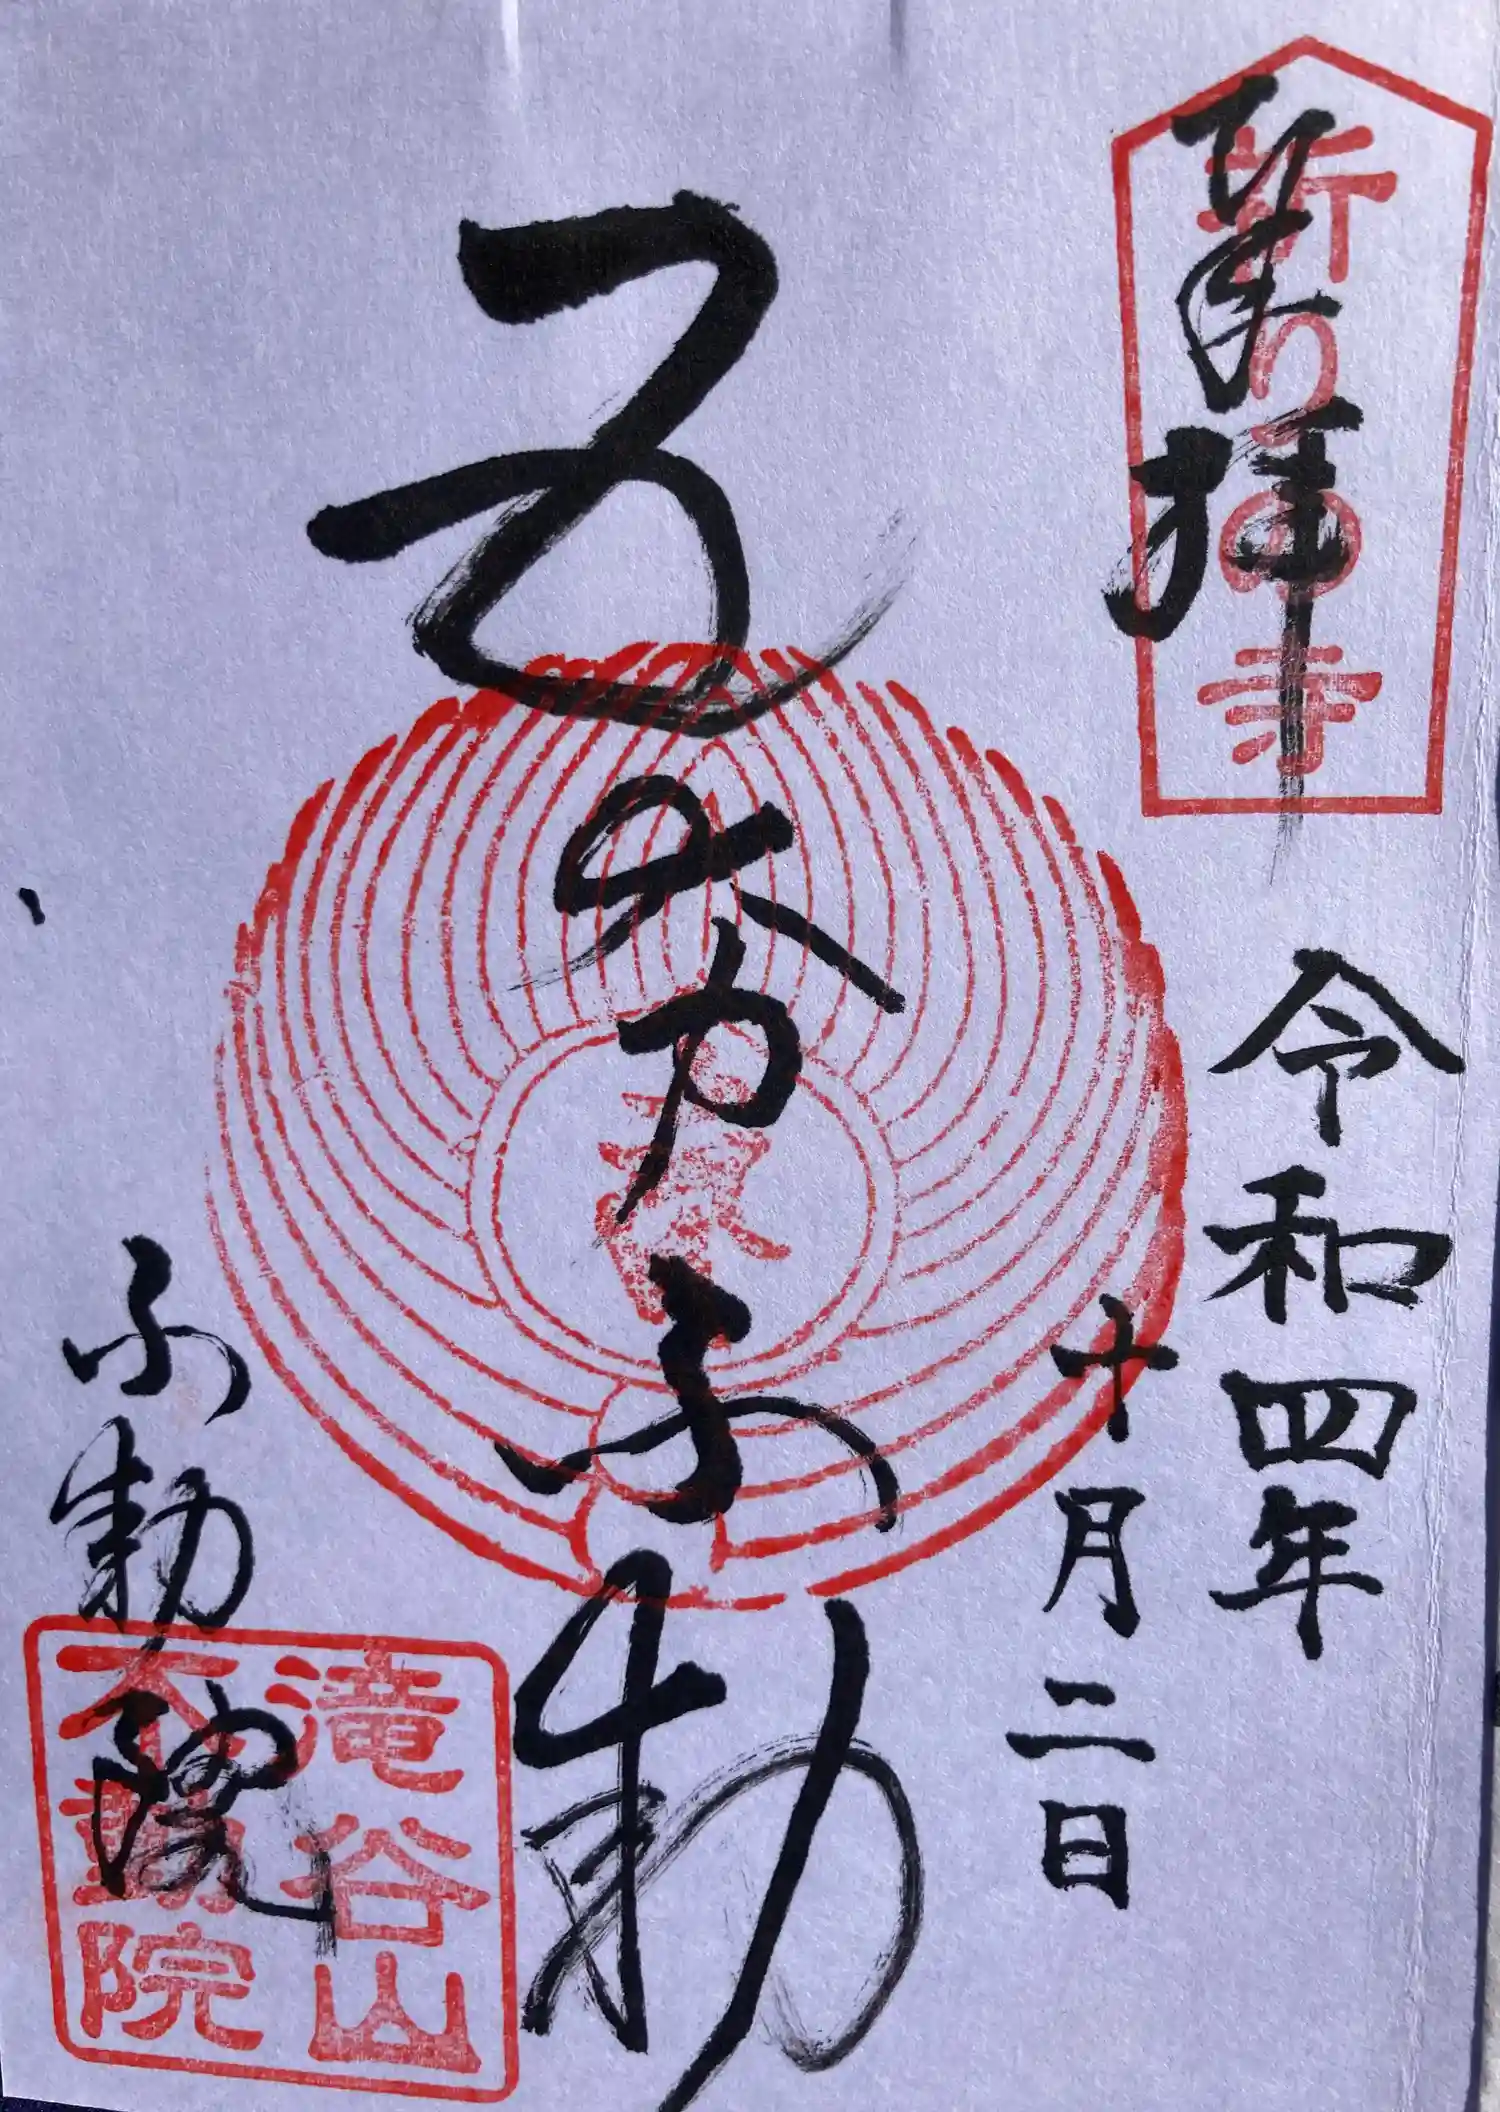 奉拝
祈りの寺
令和四年
十月二日
五大力不動
不動院
滝谷山
不動院